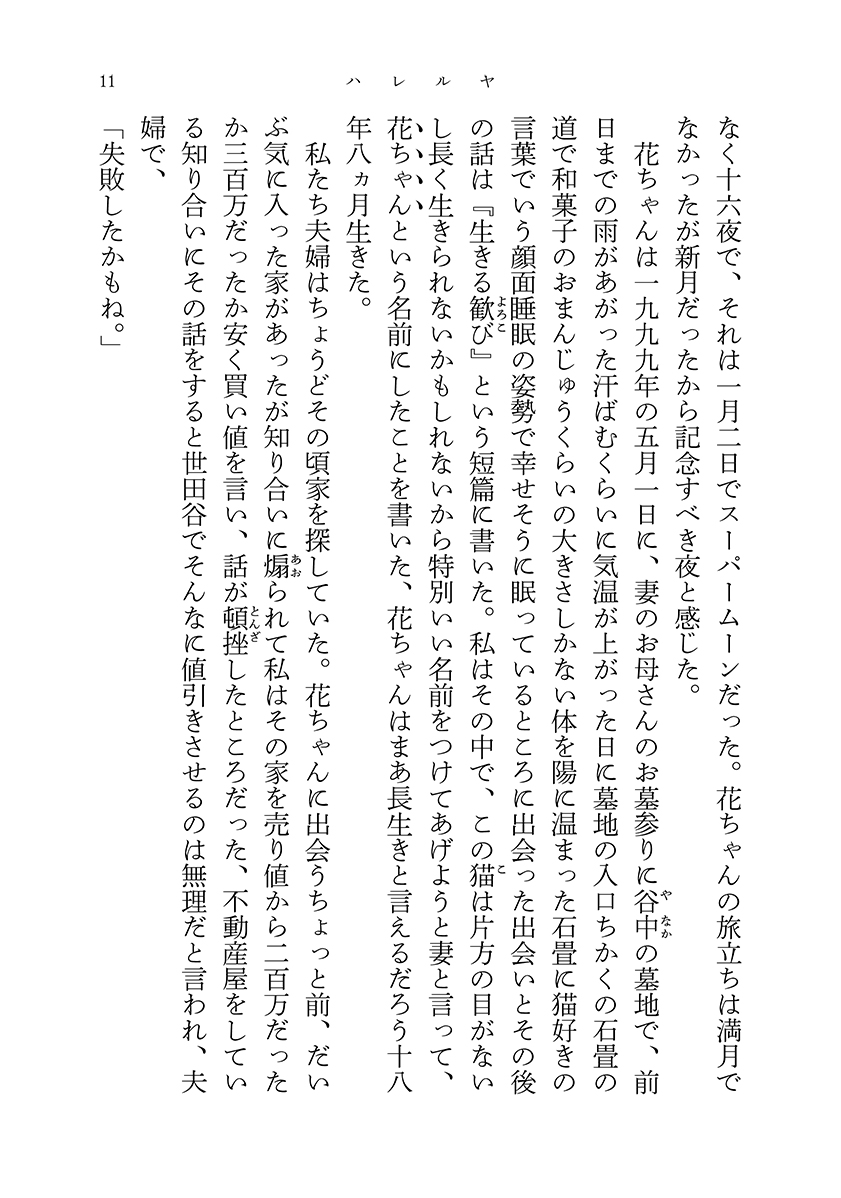 11
ハレルヤ
なく十六夜で、それは一月二日でスーパームーンだった。花ちゃんの旅立ちは満月で
なかったが新月だったから記念すべき夜と感じた。
花ちゃんは一九九九年の五月一日に、妻のお母さんのお墓参りに谷中の墓地で、前
日までの雨があがった汗ばむくらいに気温が上がった日に墓地の入口ちかくの石畳の
道で和菓子のおまんじゅうくらいの大きさしかない体を陽に温まった石畳に猫好きの
言葉でいう顔面睡眠の姿勢で幸せそうに眠っているところに出会った出会いとその後
の話は『生きる歓び』という短篇に書いた。私はその中で、この猫は片方の目がない
し長く生きられないかもしれないから特別いい名前をつけてあげようと妻と言って、
花ちゃんという名前にしたことを書いた、花ちゃんはまあ長生きと言えるだろう十八
年八ヵ月生きた。
私たち夫婦はちょうどその頃家を探していた。花ちゃんに出会うちょっと前、だい
ぶ気に入った家があったが知り合いに煽られて私はその家を売り値から二百万だった
か三百万だったか安く買い値を言い、話が頓挫したところだった、不動産屋をしてい
る知り合いにその話をすると世田谷でそんなに値引きさせるのは無理だと言われ、夫
婦で、
「失敗したかもね。」